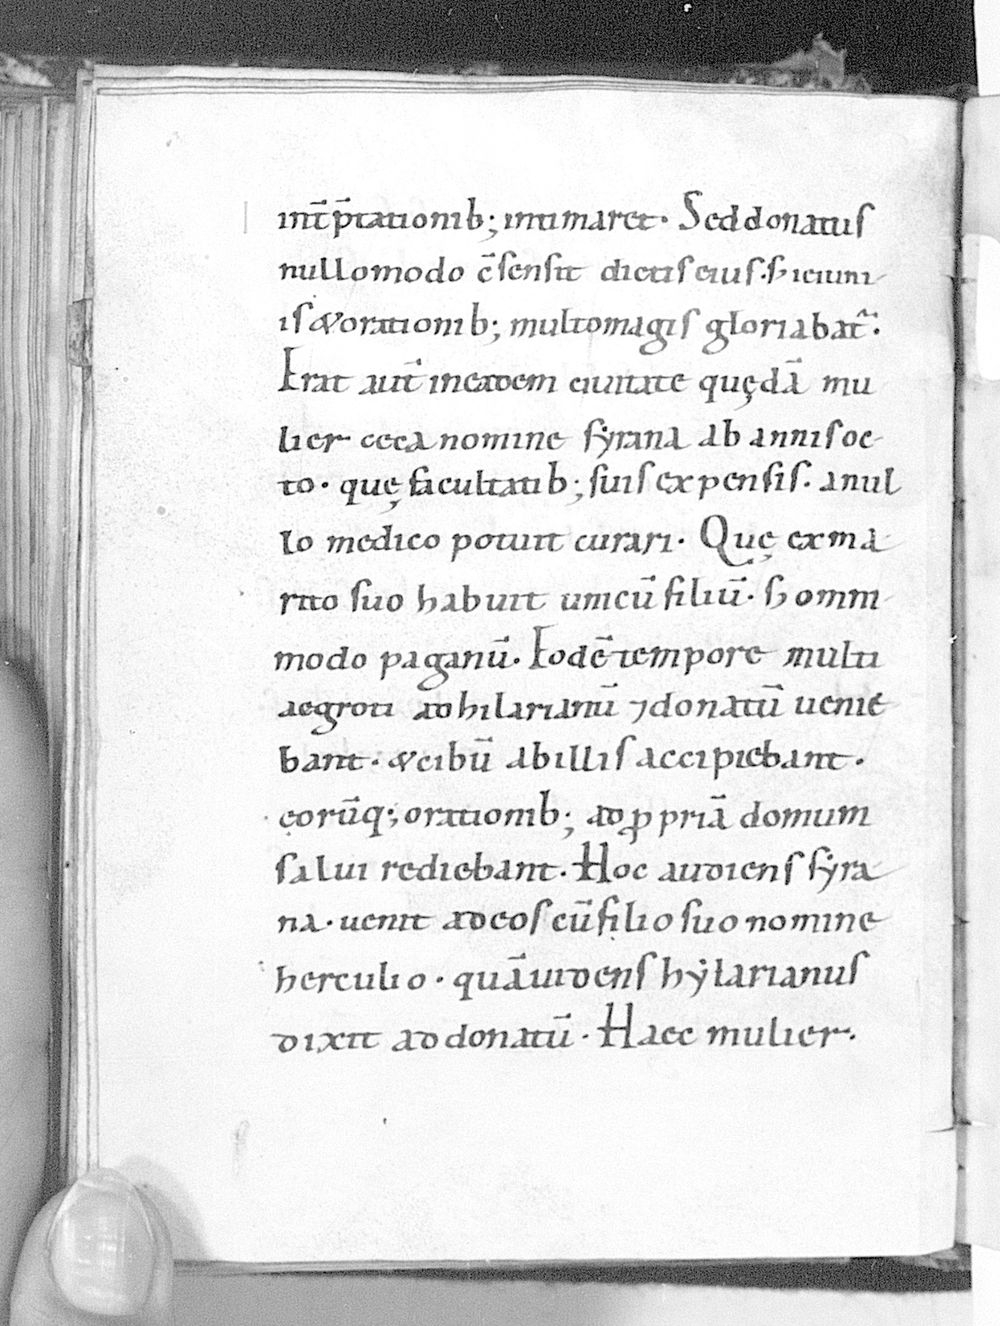 int̄p̄tationib; intimaret. Seddonatus
nullomodo c̄sensit dictis eius. sʒ ieiuni
is &orationib; multomagis gloriabat̃.
Erat aut̄ ineadem ciuitate quędā mu
lier ceca nomine syrana ab annis oc
to. quę facultatib; suis expensis. anul
lo medico potuit curari. Quę exma
rito suo habuit unicū filiū. sʒ omni
modo paganū. Eodē tempore multi
aegroti adhilarianū ⁊donatū uenie
bant. &cibū abillis accipiebant.
eorūq; orationib; adꝓpriā domum
salui rediebant. Hoc audiens syra
na. uenit adeos cūfilio suo nomine
herculio. quā uidens hẏlarianus
dixit addonatū. Haec mulier.